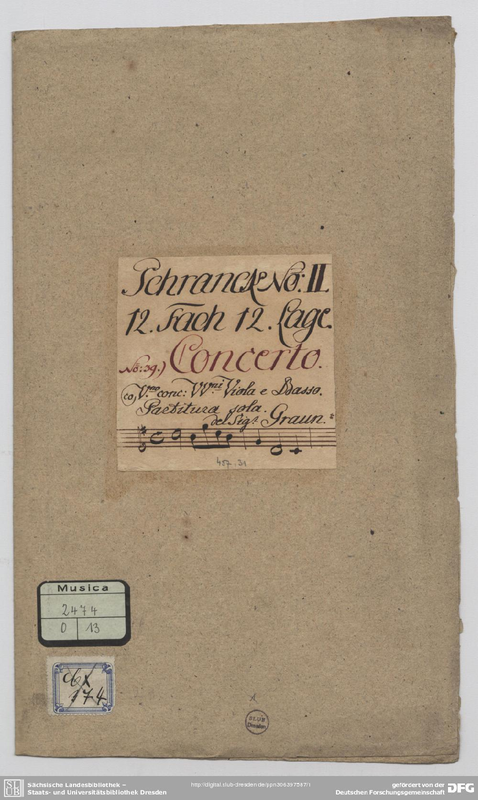 Schranck No: II.
12. Fach 12. Lage.
No: 29.) Concerto.
co, V.no conc: VV.ni Viola e Basso.
Partitura sola.
del Sig.r Graun.
Musica
2474
O 13
Cx
174
SLUB
Dresden
Sächsische Landesbibliothek –
Staats- und Universitätsbibliothek Dresden
gefördert von der
Deutschen Forschungsgemeinschaft
DFG